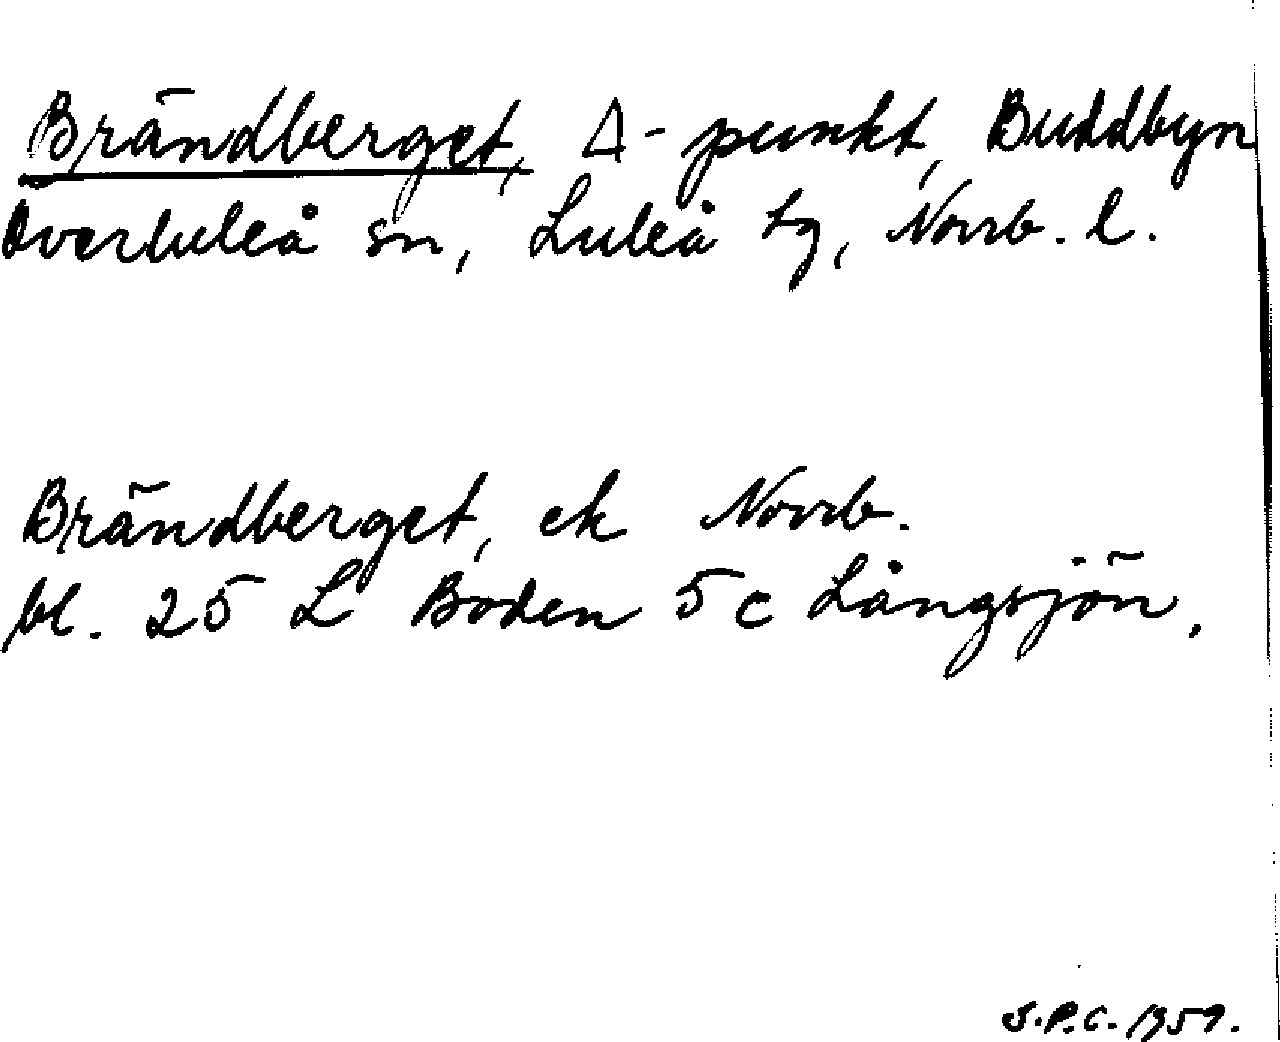 Brändberget, Δ-punkt, Buddbyn
Överluleå sn, Luleå tg, Norrb. l.
Brändberget, ek Norrb.
bl. 25 L Boden 5c Långsjön.
S.P.C. 1959.